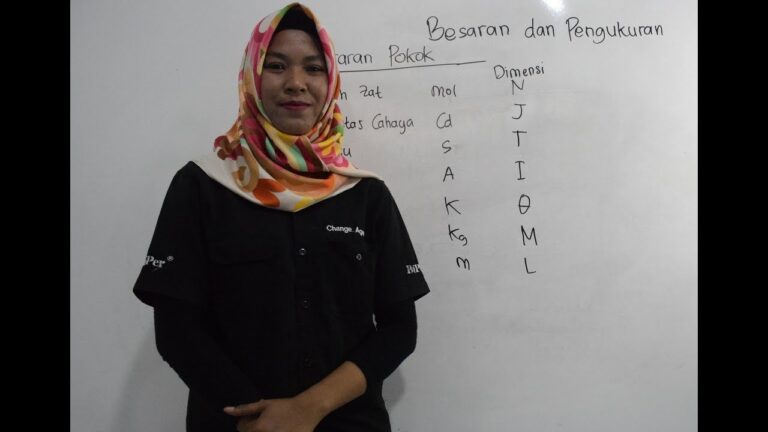 Besaran dan Pengukuran
aran Pokok
Dimensi
Zat mol N
tas Cahaya Cd J
u S T
A I
K θ
Kg M
m L
Change
Per®